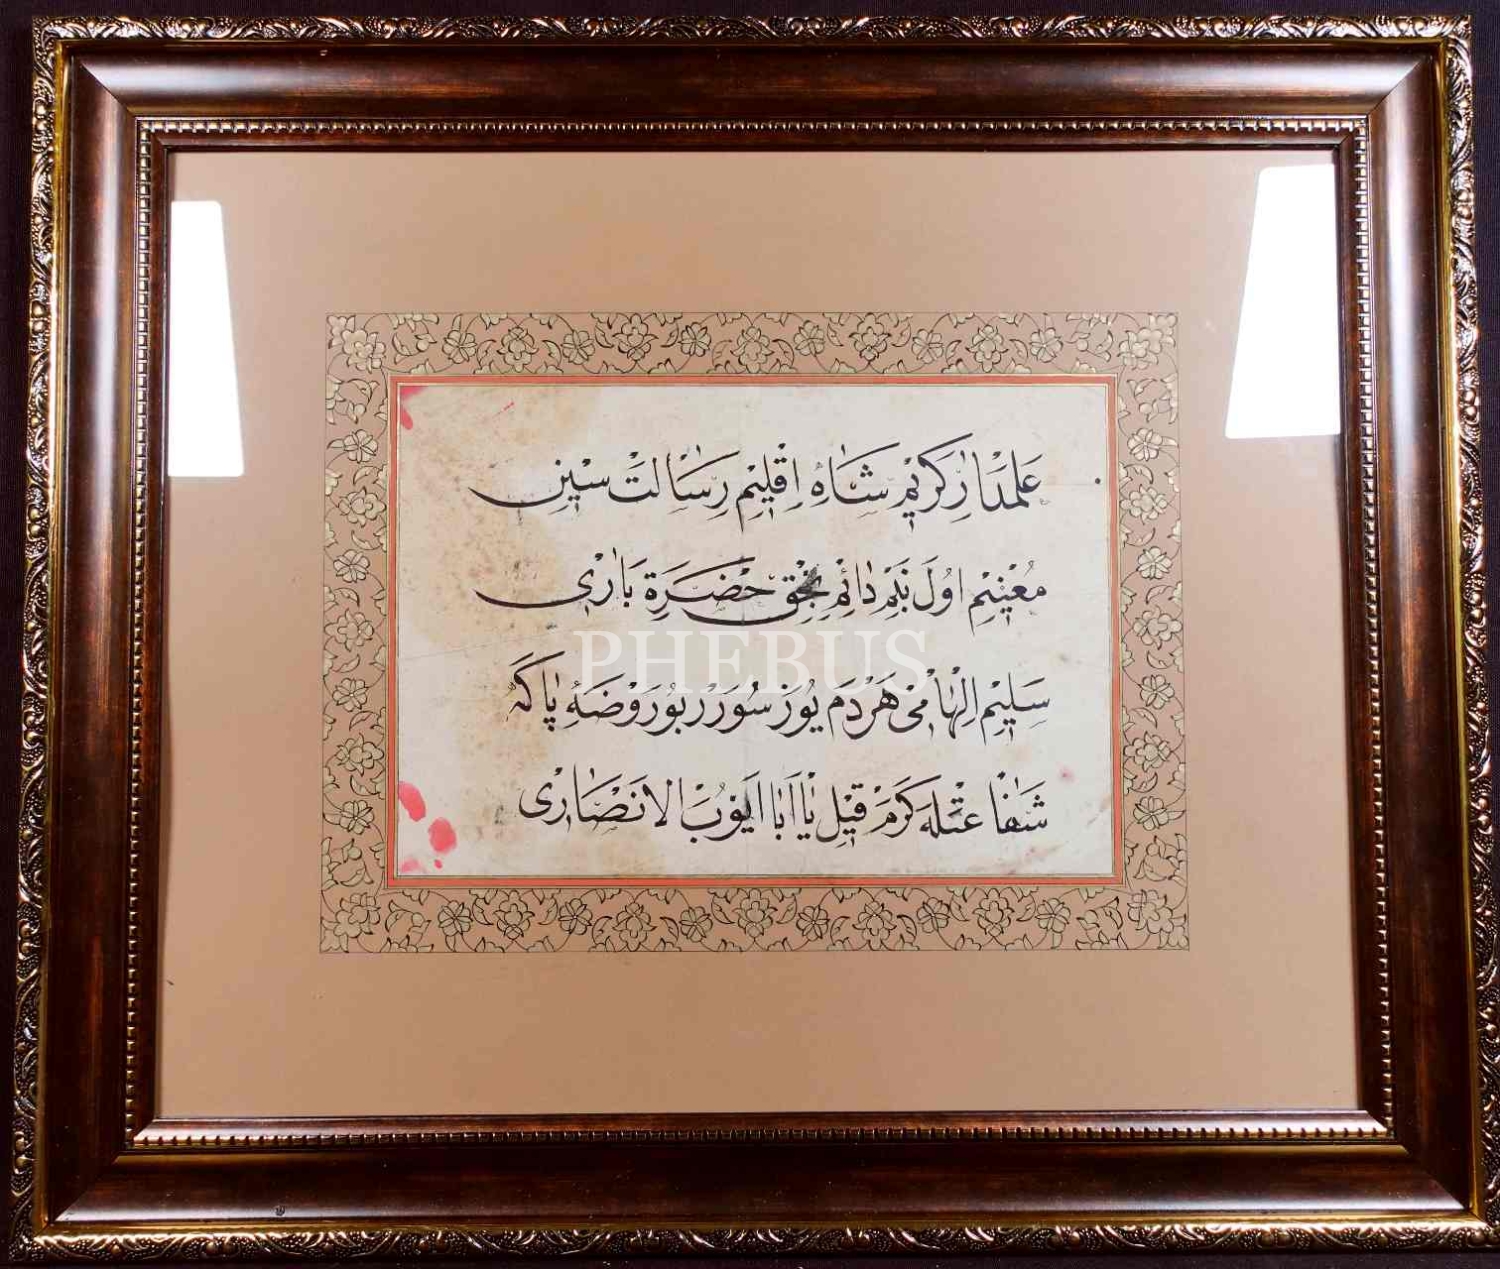 عَلمدَار كَريْم شَاهِ اِقْليْم رِسَالتْ سيْنِ
مُعيْنِمْ اوُلَ بَنمْ دَائمْ بحَقِّ حَضْرَة بَارْى
PHEBUS
سَليْم اِلْهَامْى هَرْدَمْ يُوزْ سُورَرْ بُورَوْضَهِٔ پَاكَهْ
شَفَاعَتْلَه كَرَمْ قيْل يَا اَبَا اَيّوُبْ الانَصَارْى